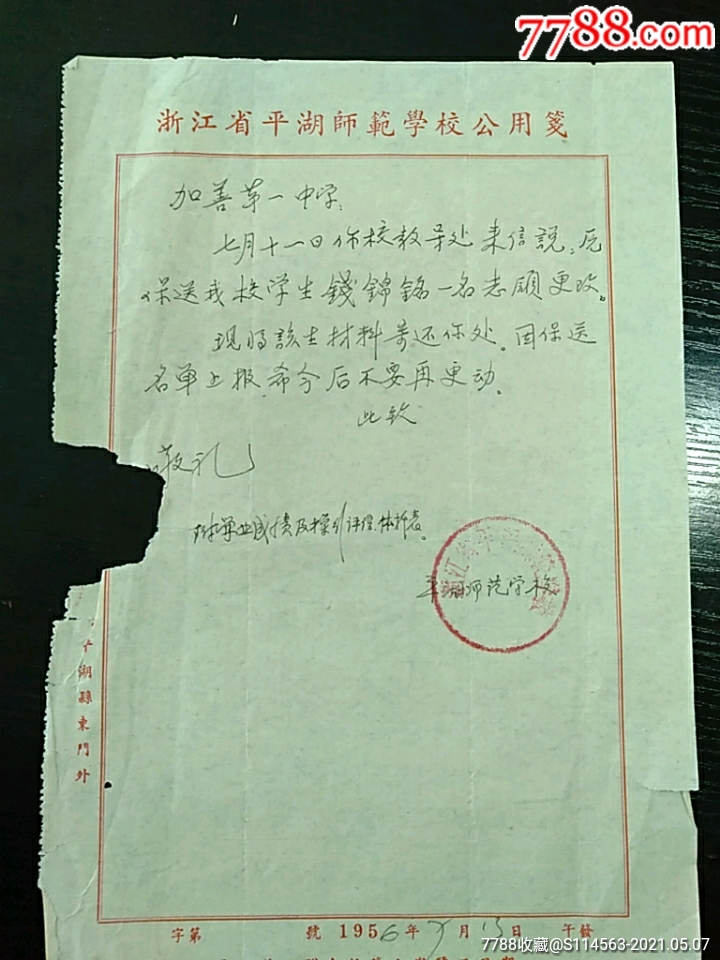 7788.com
中国收藏热线
浙江省平湖師範學校公用箋
加善苐一中学:
七月十一日你校教导处来信說,原
保送我校学生錢錦銘一名志願更改。
現將該生材料寄还你处。因保送
名單上报,希今后不要再更动。
此致
敬礼
附畢业成績及操行评语、体诊表。
平湖师范学校
平湖縣東門外
字第 號 1956年7月13日 午發
7788收藏@S114563-2021.05.07